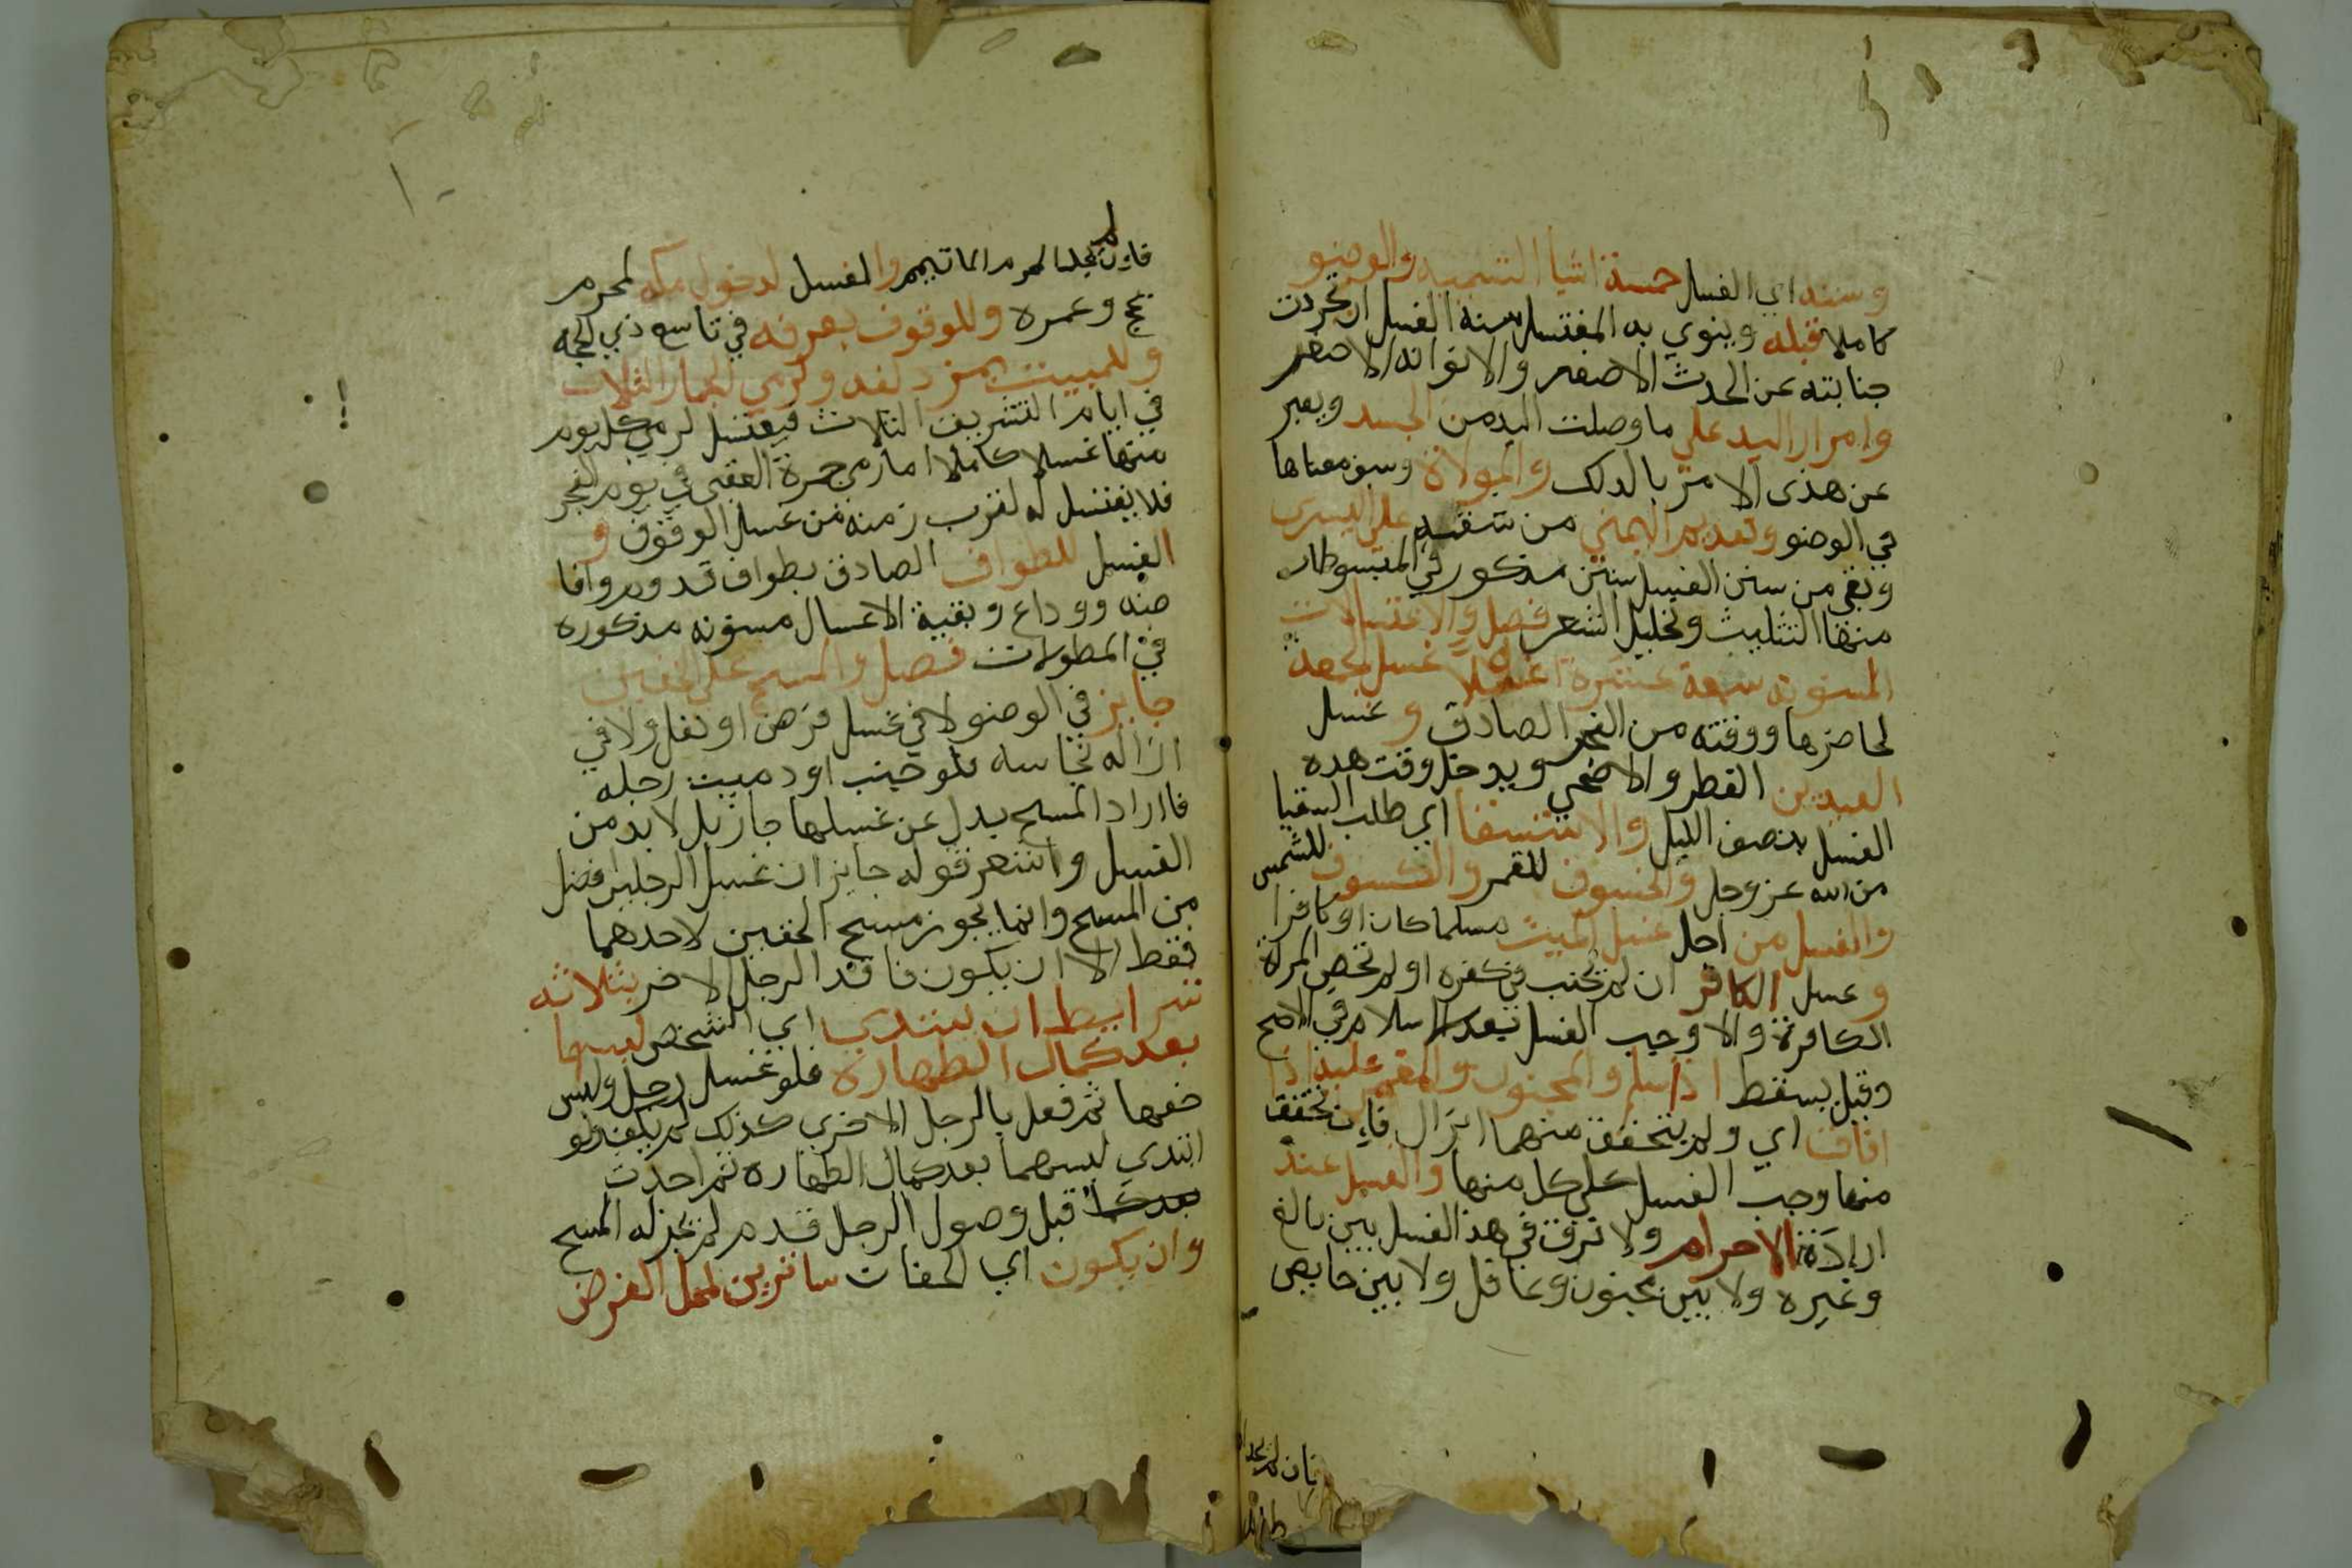 وسننه اي الغسل خمسة اشيا التسميه والوضو
كاملا قبله وينوي به المغتسل سنة الغسل ان تجردت
جنابته عن الحدث الاصغر والا نوا به الاصغر
وامرار اليد علي ما وصلت اليه من الجسد ويعبر
عن هذى الامر بالدلك والموالاة وسبق معناها
في الوضو وتقديم اليمني من شقيه علي اليسرى
وبقي من سنن الغسل سنن مذكور في المبسوطات
منها التثليث وتخليل الشعر فصل والاغتسالات
المسنونه سبعة عشرة غسلا غسل الجمعة
لحاضرها ووقته من الفجر الصادق وغسل
العيدين الفطر والاضحي ويدخل وقت هده
الغسل بنصف الليل والاستسقا اي طلب السقيا
من الله عز وجل والخسوف للقمر والكسوف للشمس
والغسل من اجل غسل الميت مسلما كان او كافرا
وغسل الكافر ان لم يجنب في كفره او لم تحص المراة
الكافرة والا وجب الغسل بعد الاسلام في الاصح
وقيل يسقط اذا اسلم والمجنون والمغمي عليه اذا
افاقا اي ولم يتحقق منهما انزال فاين تحقق
منها وجب الغسل علي كل منها والغسل عند
ارادة الاحرام ولا فرق في هذ الغسل بين بالغ
وغيره ولا بين مجنون وعاقل ولا بين حايض
فان لم يجد
فاين لم يجد المحرم الما تيمم والغسل لدخول مكه لمحرم
بحج وعمره وللوقوف بعرفه في تاسع ذي الحجه
وللمبيت بمزدلفه ولرمي الجمار الثلاث
في ايام التشريق الثلاث فيغتسل لرمي كل يوم
منها غسلا كاملا اما رمي جمرة العقبى في يوم النحر
فلا يغتسل له لقرب زمنه من غسل الوقوف و
الغسل للطواف الصادق بطواف قدوم وافا
ضه ووداع وبقية الاغسال مسنونه مذكوره
في المطولات فصل والمسح علي الخفين
جايز في الوضو لا في غسل فرض او نفل ولا في
ازاله نجاسه فلو جنب او دميت رجله
فاراد المسح بدل عن غسلها جاز بل لا بد من
الغسل واشعر قوله جايز ان غسل الرجلين افضل
من المسح وانما يجوز مسح الخفين لا حدهما
فقط الا ان يكون فاقد الرجل الاخر بثلاثه
شرايط ان يبتدي اي الشخص لبسها
بعد كمال الطهارة فلو غسل رجل ولبس
خفها ثم فعل بالرجل الاخرى كذلك لم يكف ولو
ابتدي لبسهما بعد كمال الطهاره ثم احدث
بعد كما قبل وصول الرجل قدم لم يجز له المسح
وان يكون اي الخفان ساترين لمحل الفرض